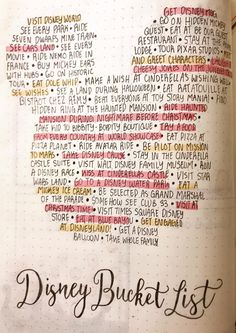 VISIT DISNEY WORLD
GET DISNEY
SEE EVERY PARK • RIDE
• GO ON HIDDEN MICKEY
SEVEN DWARFS MINE TRAIN •
GUEST • EAT AT BE OUR GUEST
SEE CARS LAND • SEE EVERY
RESTAURANT • STAY AT THE
MOVIE • RIDE NEMO RIDE IN
LODGE • TOUR PIXAR STUDIOS •
FRANCE • BUY MICKEY EARS
AND GREET CHARACTERS •
WITH HUBS • GO ON HISTORIC
CHEESY JOKES ON THE
TOUR • EAT DOLE WHIP • MAKE A WISH AT CINDERELLA'S WISHING WELL
SEE WISHES • SEE A LAND DURING HALLOWEEN • EAT RATATOUILLE AT
BISTROT CHEZ RÉMY • BEAT EVERYONE AT TOY STORY MANIA • FIND
HIDDEN RING AT THE HAUNTED MANSION • RIDE HAUNTED
MANSION DURING NIGHTMARE BEFORE CHRISTMAS •
TAKE KID TO BIBBITY-BOBBITY BOUTIQUE • TRY A FOOD
FROM EVERY COUNTRY AT WORLD SHOWCASE • EAT PIZZA AT
PIZZA PLANET • RIDE AVATAR RIDE • BE PILOT ON MISSION
TO MARS • TAKE DISNEY CRUISE • STAY IN THE CINDERELLA
CASTLE SUITE • VISIT WALT DISNEY FAMILY MUSEUM • RUN
A DISNEY RACE • KISS AT CINDERELLA'S CASTLE • VISIT STAR
WARS LAND • GO TO A DISNEY WATER PARK • EAT A
MICKEY ICE CREAM • BE SELECTED AS GRAND MARSHAL
OF THE PARADE • SOME HOW SEE CLUB 33 • VISIT AT
CHRISTMAS TIME • VISIT TIMES SQUARE DISNEY
STORE • EAT AT BLUE BAYOU • GET ENGAGED
AT DISNEYLAND! • GET A DISNEY
BALLOON • TAKE WHOLE FAMILY
Disney Bucket List